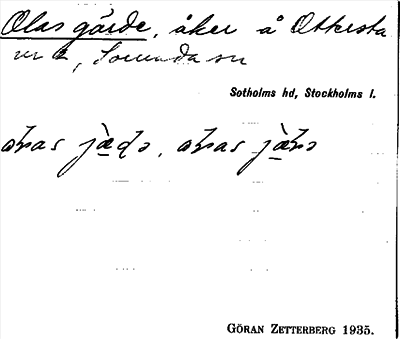 Olas gärde, åker å Ottersta
nr 2, Sorunda sn
Sotholms hd, Stockholms l.
GÖRAN ZETTERBERG 1935.